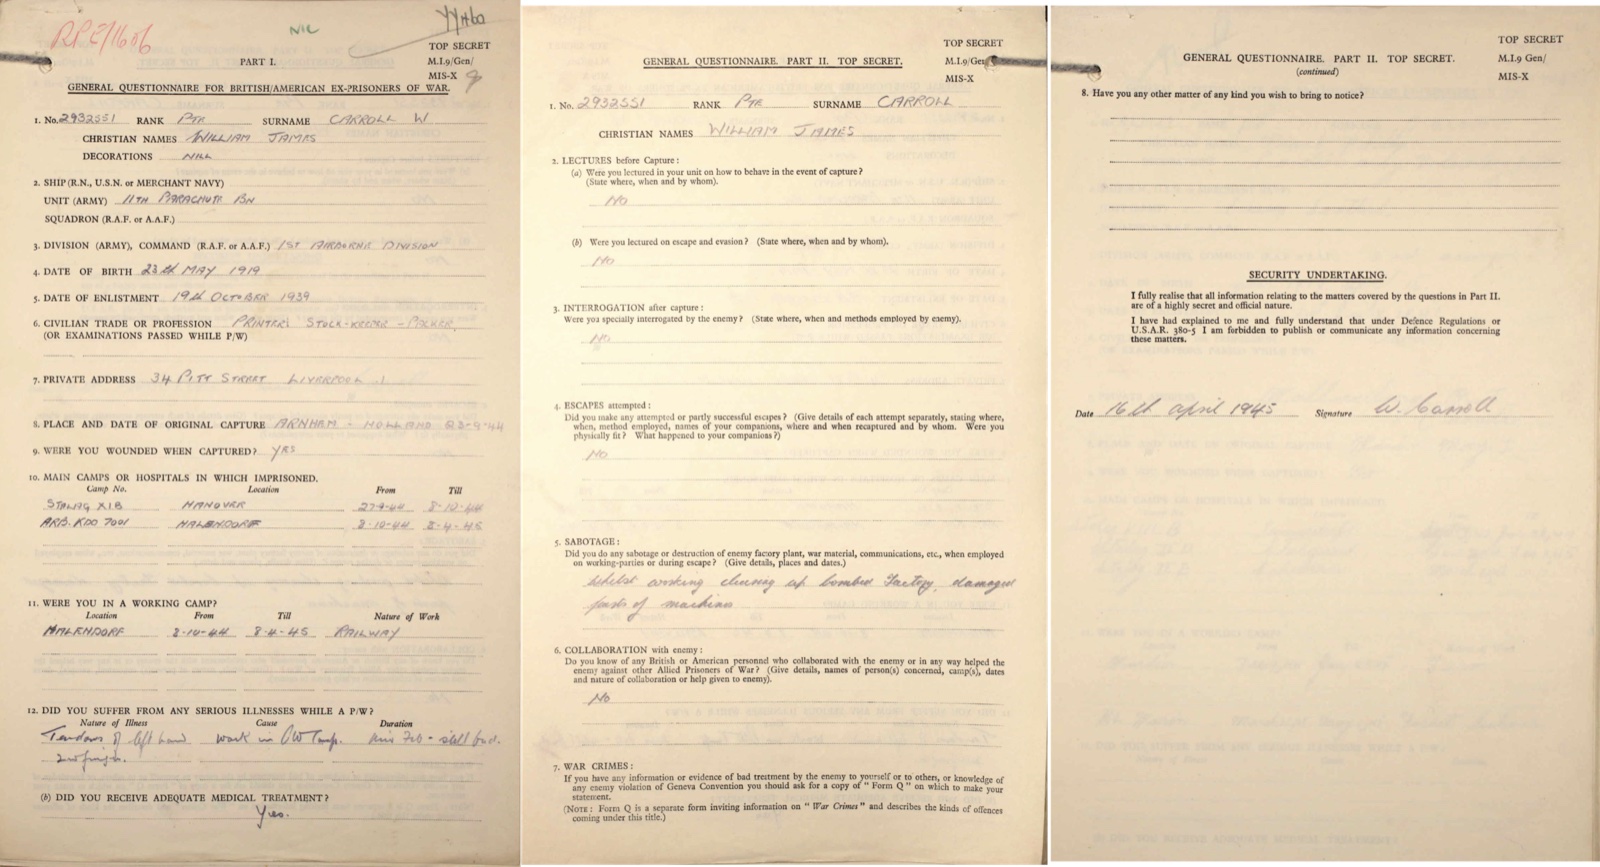 RPE/1606
NIC
YY460
TOP SECRET
M.I.9/Gen/
MIS-X 9
PART I.
GENERAL QUESTIONNAIRE FOR BRITISH/AMERICAN EX-PRISONERS OF WAR.
1. No. 2932551 RANK PTE SURNAME CARROLL W
CHRISTIAN NAMES WILLIAM JAMES
DECORATIONS NILL
2. SHIP (R.N., U.S.N. or MERCHANT NAVY)
UNIT (ARMY) 11TH PARACHUTE BN
SQUADRON (R.A.F. or A.A.F.)
3. DIVISION (ARMY), COMMAND (R.A.F. or A.A.F.) 1ST AIRBORNE DIVISION
4. DATE OF BIRTH 23th MAY 1919
5. DATE OF ENLISTMENT 19th OCTOBER 1939
6. CIVILIAN TRADE OR PROFESSION PRINTERS STOCK-KEEPER - PACKER.
(OR EXAMINATIONS PASSED WHILE P/W)
7. PRIVATE ADDRESS 34 PITT STREET LIVERPOOL .1
8. PLACE AND DATE OF ORIGINAL CAPTURE ARNHAM - HOLLAND 23-9-44
9. WERE YOU WOUNDED WHEN CAPTURED? YES
10. MAIN CAMPS OR HOSPITALS IN WHICH IMPRISONED.
Camp No. Location From Till
STALAG XIB HANOVER 27-9-44 8-10-44
ARB. KDO 7001 HALENDORF 8-10-44 8-4-45
11. WERE YOU IN A WORKING CAMP?
Location From Till Nature of Work
HALENDORF 8-10-44 8-4-45 RAILWAY
12. DID YOU SUFFER FROM ANY SERIOUS ILLNESSES WHILE A P/W?
Nature of Illness Cause Duration
Tendons of left hand work in Camp. Feb - still bad.
2nd finger.
(b) DID YOU RECEIVE ADEQUATE MEDICAL TREATMENT?
Yes.
TOP SECRET
M.I.9/Gen/
MIS-X
GENERAL QUESTIONNAIRE. PART II. TOP SECRET.
1. No. 2932551 RANK PTE SURNAME CARROLL
CHRISTIAN NAMES WILLIAM JAMES
2. LECTURES before Capture:
(a) Were you lectured in your unit on how to behave in the event of capture?
(State where, when and by whom).
NO
(b) Were you lectured on escape and evasion? (State where, when and by whom).
NO
3. INTERROGATION after capture:
Were you specially interrogated by the enemy? (State where, when and methods employed by enemy).
NO
4. ESCAPES attempted:
Did you make any attempted or partly successful escapes? (Give details of each attempt separately, stating where,
when, method employed, names of your companions, where and when recaptured and by whom. Were you
physically fit? What happened to your companions?)
NO
5. SABOTAGE:
Did you do any sabotage or destruction of enemy factory plant, war material, communications, etc., when employed
on working-parties or during escape? (Give details, places and dates.)
Whilst working clearing up bombed factory, damaged
parts of machines
6. COLLABORATION with enemy:
Do you know of any British or American personnel who collaborated with the enemy or in any way helped the
enemy against other Allied Prisoners of War? (Give details, names of person(s) concerned, camp(s), dates
and nature of collaboration or help given to enemy).
NO
7. WAR CRIMES:
If you have any information or evidence of bad treatment by the enemy to yourself or to others, or knowledge of
any enemy violation of Geneva Convention you should ask for a copy of "Form Q" on which to make your
statement.
(NOTE: Form Q is a separate form inviting information on "War Crimes" and describes the kinds of offences
coming under this title.)
TOP SECRET
M.I.9 Gen/
MIS-X
GENERAL QUESTIONNAIRE. PART II. TOP SECRET.
(continued)
8. Have you any other matter of any kind you wish to bring to notice?
SECURITY UNDERTAKING.
I fully realise that all information relating to the matters covered by the questions in Part II.
are of a highly secret and official nature.
I have had explained to me and fully understand that under Defence Regulations or
U.S.A.R. 380-5 I am forbidden to publish or communicate any information concerning
these matters.
Date 16th April 1945 Signature W. Carroll